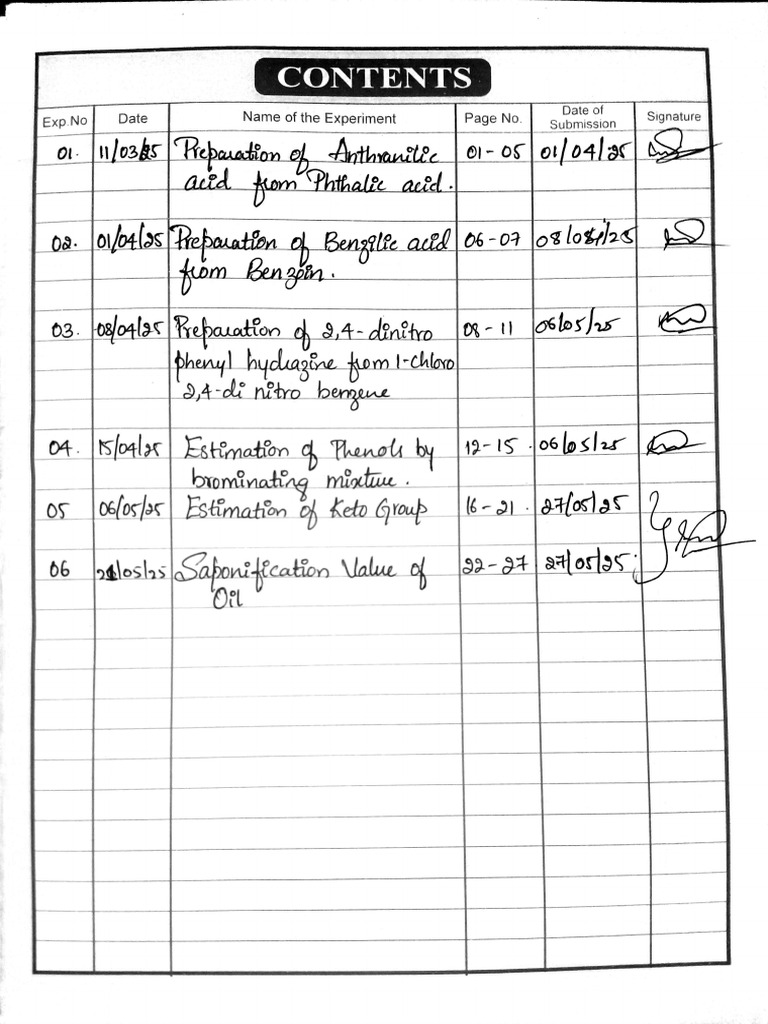 CONTENTS
Exp.No Date Name of the Experiment Page No. Date of Submission Signature
01. 11/03/25 Preparation of Anthranilic 01-05 01/04/25
acid from Phthalic acid.
02. 01/04/25 Preparation of Benzilic acid 06-07 08/04/25
from Benzoin.
03. 08/04/25 Preparation of 2,4-dinitro 08-11 06/05/25
phenyl hydrazine from 1-chloro
2,4-di nitro benzene
04. 15/04/25 Estimation of Phenols by 12-15. 06/05/25
brominating mixture.
05 06/05/25 Estimation of Keto Group 16-21. 27/05/25
06 /05/25 Saponification Value of 22-27 27/05/25.
Oil